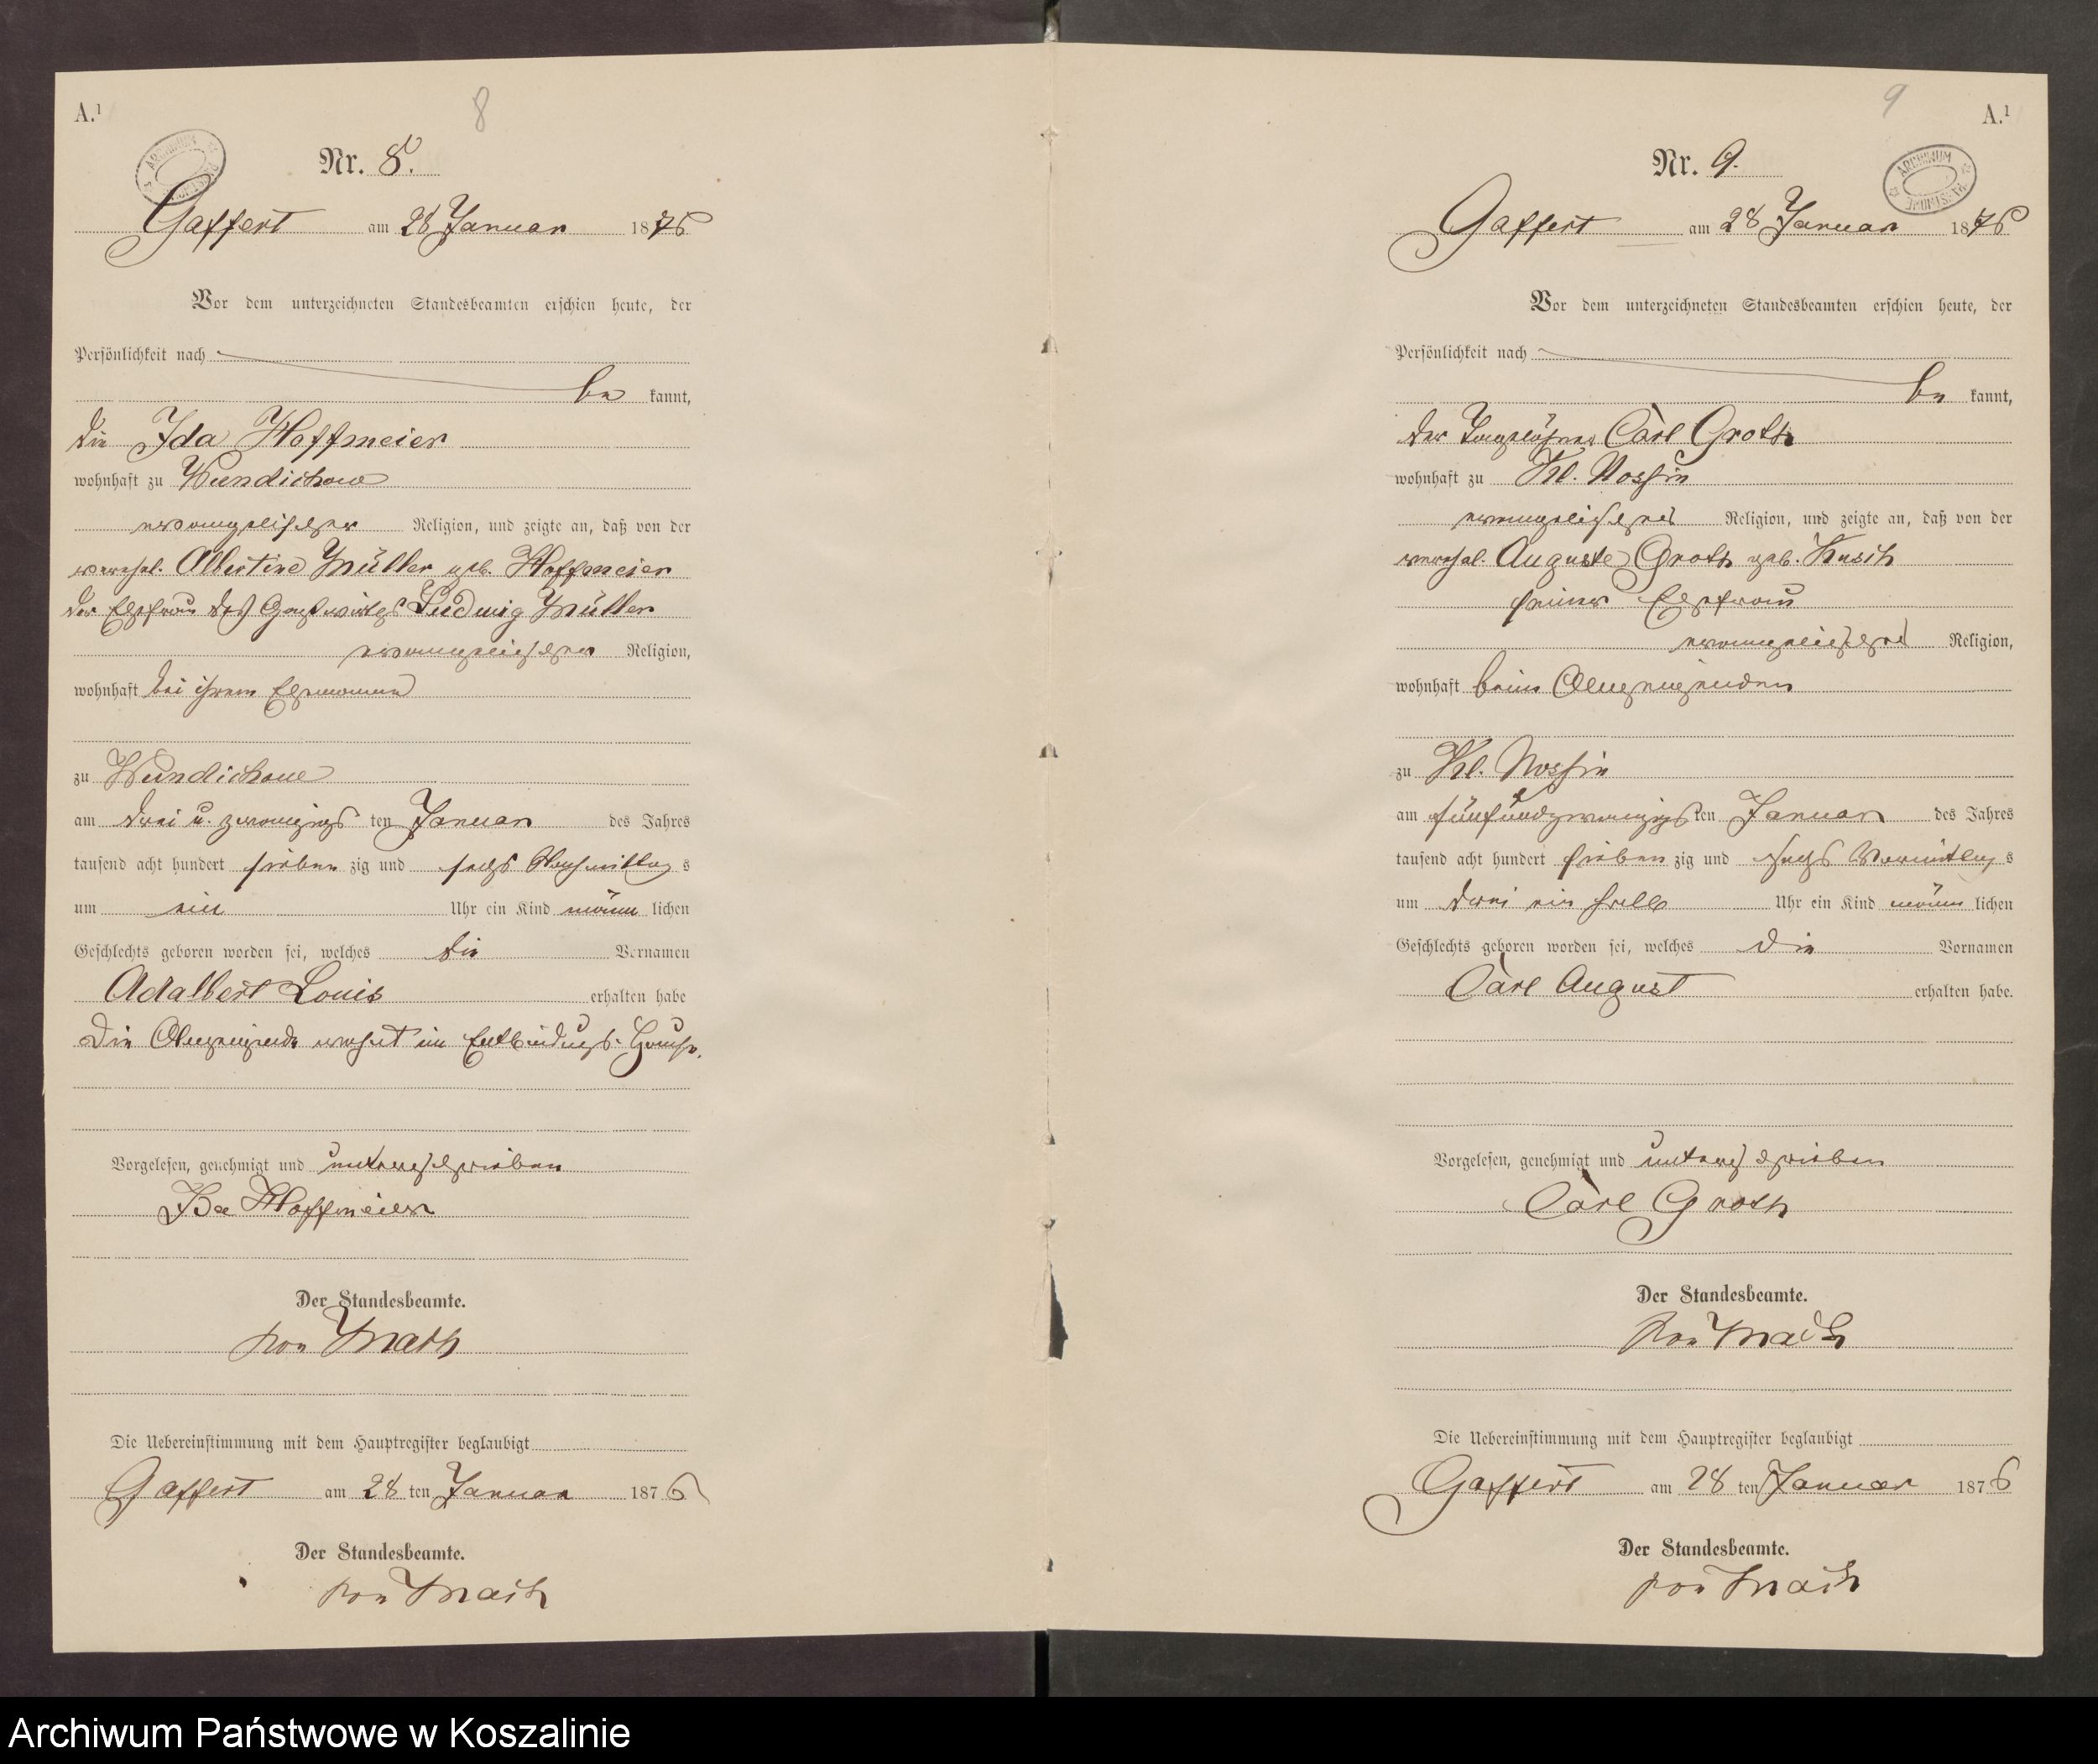 A.¹
8
ARCHIWUM
Nr. 8.
Gaffert am 28 Januar 1876
Vor dem unterzeichneten Standesbeamten erschien heute, der
Persönlichkeit nach
be kannt,
die Ida Hoffmeier
wohnhaft zu Wundichow
evangelischer Religion, und zeigte an, daß von der
verehel. Albertine Müller geb. Hoffmeier
der Ehefrau des Gastwirths Ludwig Müller
evangelischer Religion,
wohnhaft bei ihrem Ehemanne
zu Wundichow
am drei u. zwanzigs ten Januar des Jahres
tausend acht hundert sieben zig und sechs Nachmittag s
um ein Uhr ein Kind männ lichen
Geschlechts geboren worden sei, welches die Vornamen
Adalbert Louis erhalten habe
Die Anzeigende wohnt im Entbindungs-Hause.
Vorgelesen, genehmigt und unterschrieben
Ida Hoffmeier
Der Standesbeamte.
von
Die Uebereinstimmung mit dem Hauptregister beglaubigt
Gaffert am 28 ten Januar 1876
Der Standesbeamte.
von
9
A.¹
ARCHIWUM
Nr. 9.
Gaffert am 28 Januar 1876
Vor dem unterzeichneten Standesbeamten erschien heute, der
Persönlichkeit nach
be kannt,
der Tagelöhner Carl Groth
wohnhaft zu Kl. Nossin
evangelischer Religion, und zeigte an, daß von der
verehel. Auguste Groth geb.
seiner Ehefrau
evangelischer Religion,
wohnhaft beim Anzeigenden
zu Kl. Nossin
am fünfundzwanzigs ten Januar des Jahres
tausend acht hundert sieben zig und sechs Vormittag s
um drei ein halb Uhr ein Kind männ lichen
Geschlechts geboren worden sei, welches die Vornamen
Carl August erhalten habe.
Vorgelesen, genehmigt und unterschrieben
Carl Groth
Der Standesbeamte.
von
Die Uebereinstimmung mit dem Hauptregister beglaubigt
Gaffert am 28 ten Januar 1876
Der Standesbeamte.
von
Archiwum Państwowe w Koszalinie